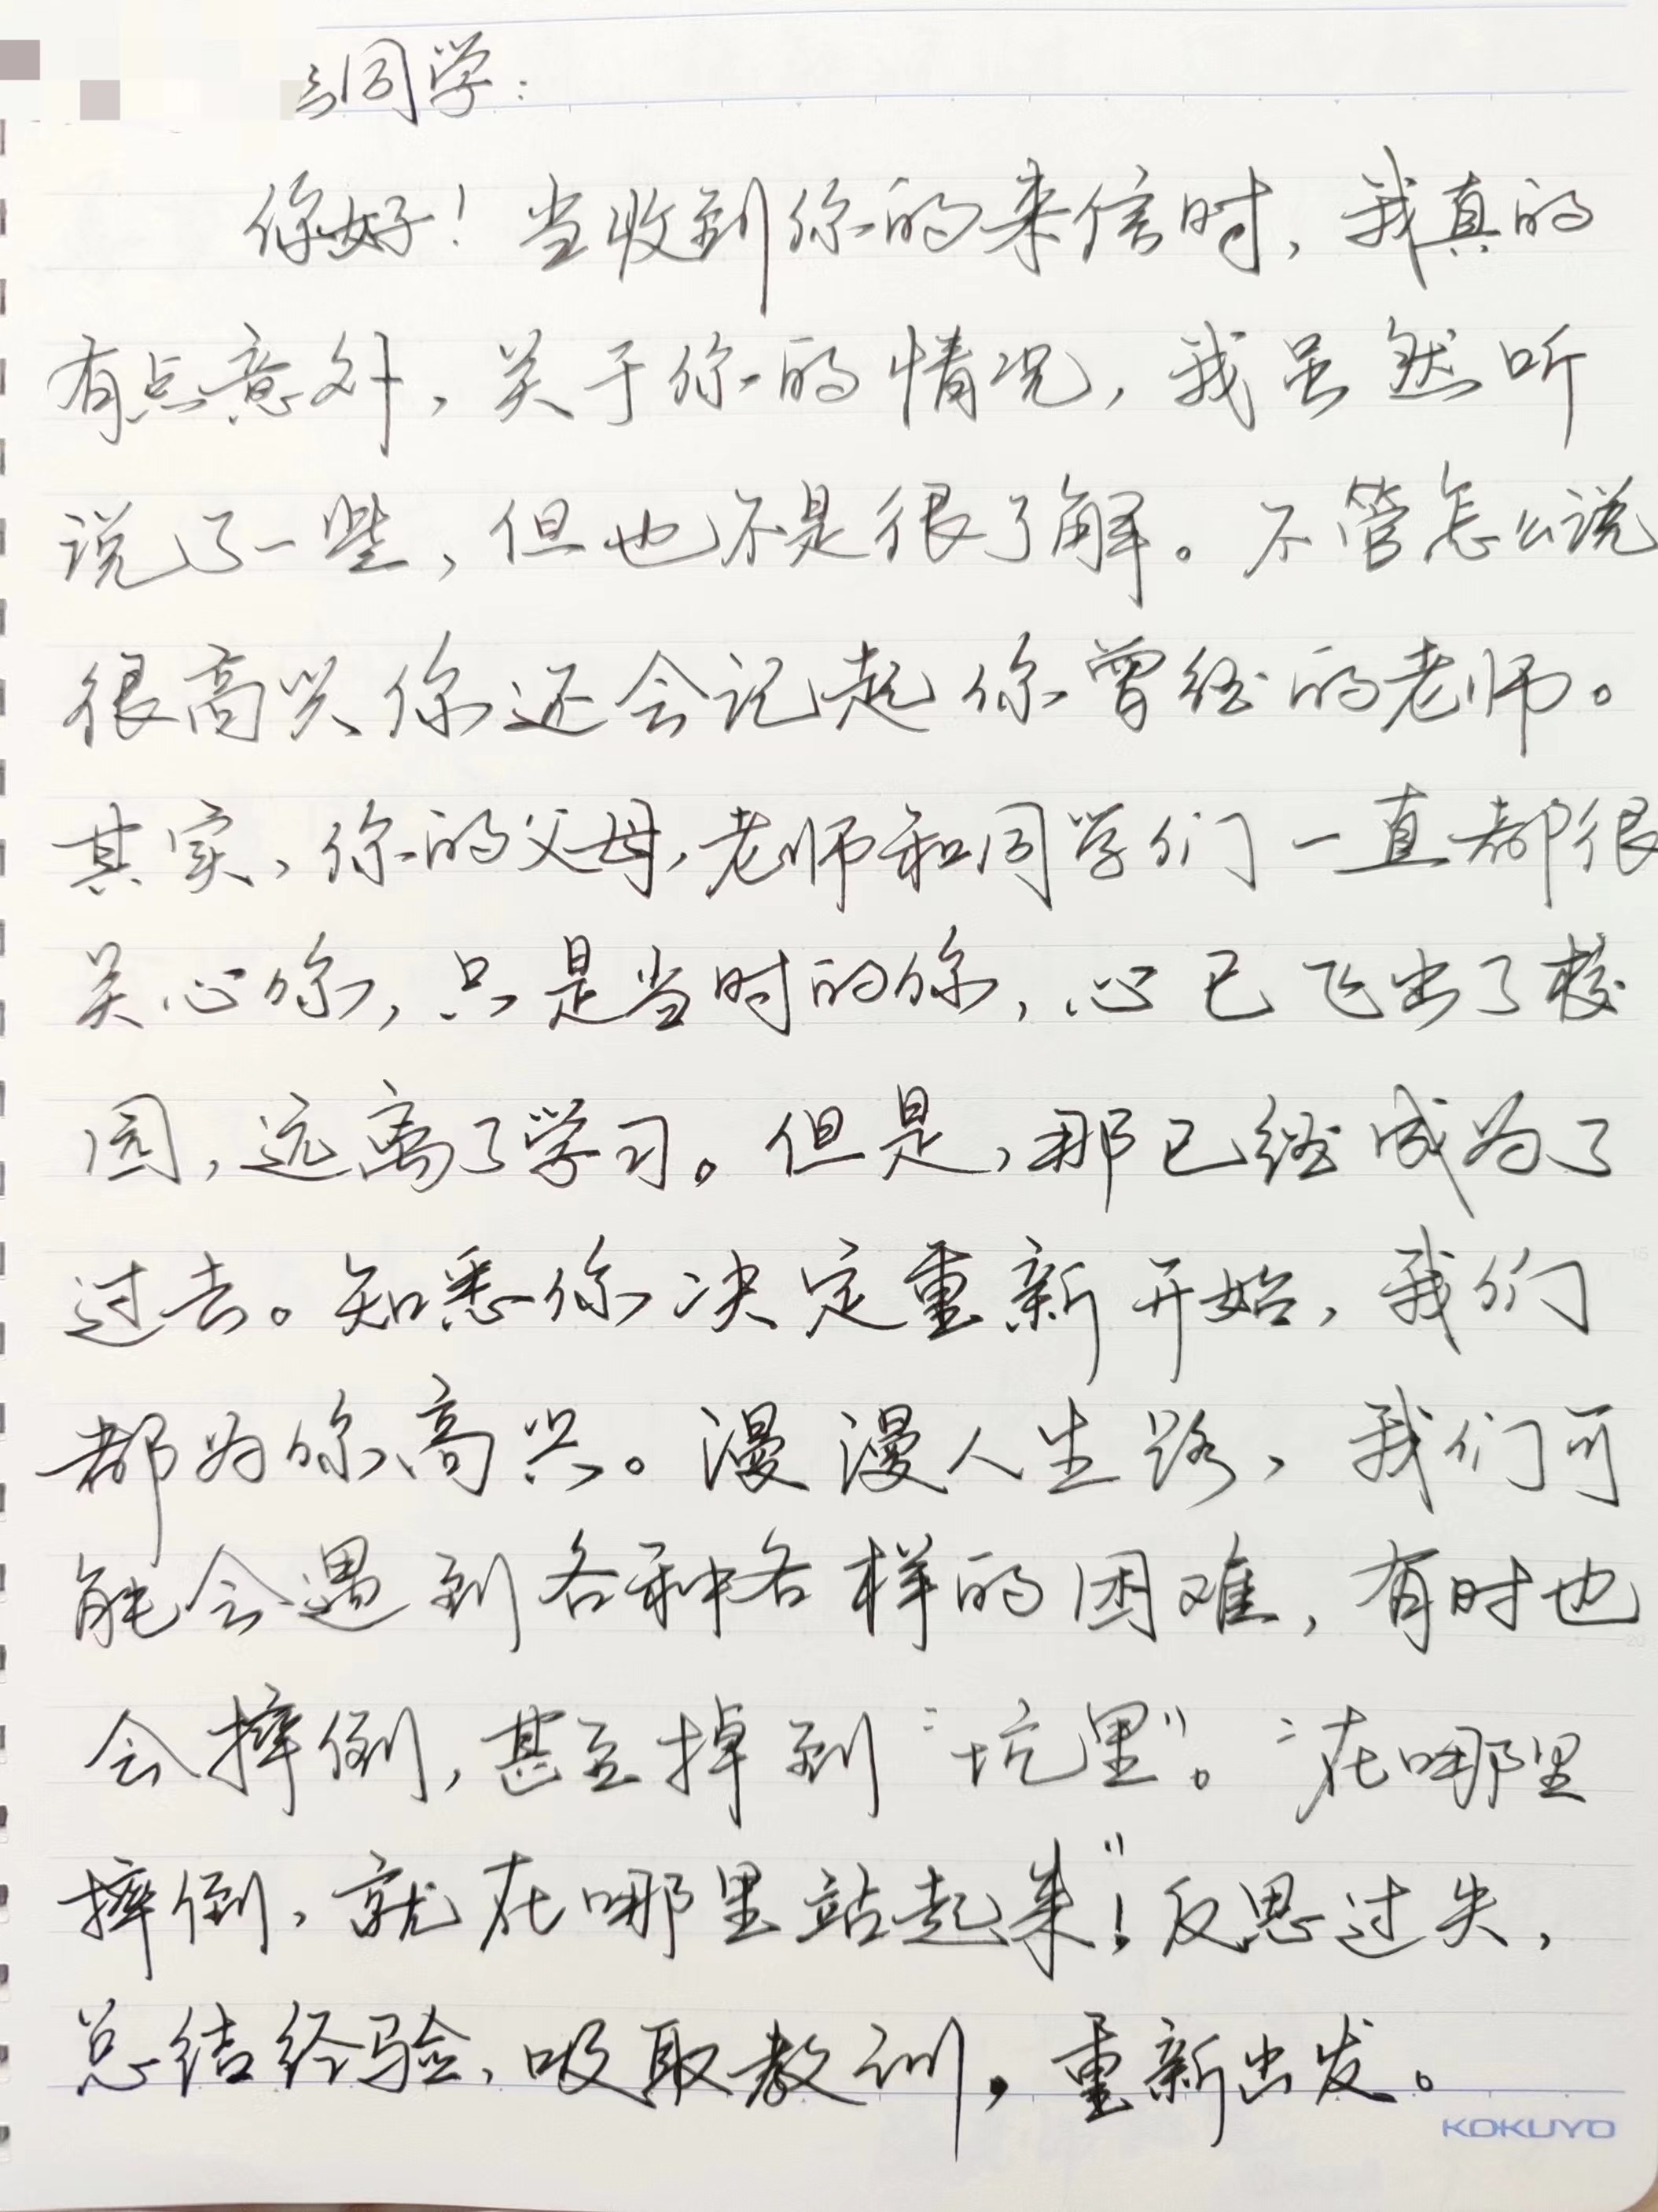 同学：
你好！当收到你的来信时，我真的
有点意外，关于你的情况，我虽然听
说了一些，但也不是很了解。不管怎么说
很高兴你还会记起你曾经的老师。
其实，你的父母，老师和同学们一直都很
关心你，只是当时的你，心已飞出了校
园，远离了学习。但是，那已经成为了
过去。知悉你决定重新开始，我们
都为你高兴。漫漫人生路，我们可
能会遇到各种各样的困难，有时也
会摔倒，甚至掉到“坑里”。“在哪里
摔倒，就在哪里站起来”！反思过失，
总结经验，吸取教训，重新出发。
KOKUYO